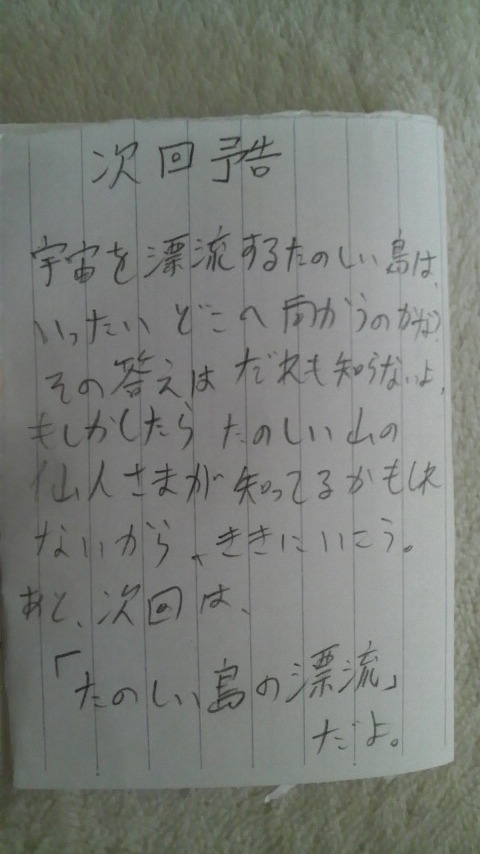 次回予告
宇宙を漂流するたのしい島は、
いったいどこへ向かうのかな?
その答えはだれも知らないよ。
もしかしたらたのしい山の
仙人さまが知ってるかもしれ
ないから、ききにいこう。
あと、次回は、
「たのしい島の漂流」
だよ。